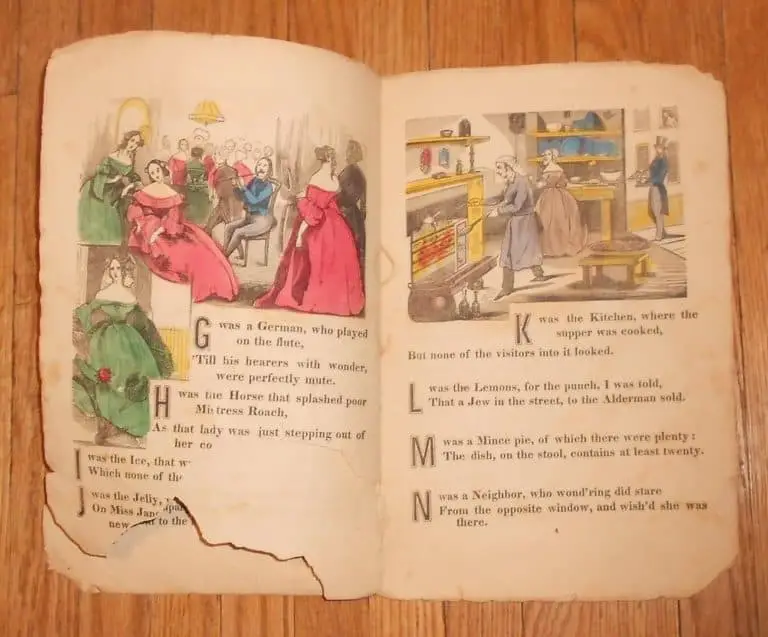 G was a German, who played
on the flute,
'Till his hearers with wonder,
were perfectly mute.
H was the Horse that splashed poor
Mistress Roach,
As that lady was just stepping out of
her co
I was the Ice, that w
Which none of the
J was the Jelly,
On Miss Jan
new to the
K was the Kitchen, where the
supper was cooked,
But none of the visitors into it looked.
L was the Lemons, for the punch, I was told,
That a Jew in the street, to the Alderman sold.
M was a Mince pie, of which there were plenty:
The dish, on the stool, contains at least twenty.
N was a Neighbor, who wond'ring did stare
From the opposite window, and wish'd she was
there.